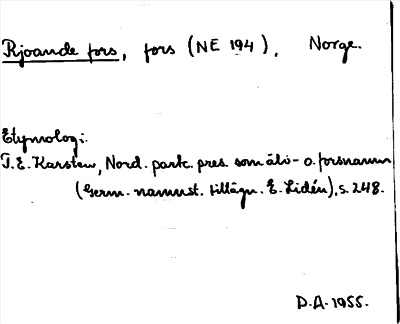 Rjoande fors, fors (NE 194), Norge.
Etymologi:
T.E. Karsten, Nord. partc. pres. som älv- o. forsnamn
(Germ. namnst. tillägn. E. Lidén), s. 248.
D.A. 1955.